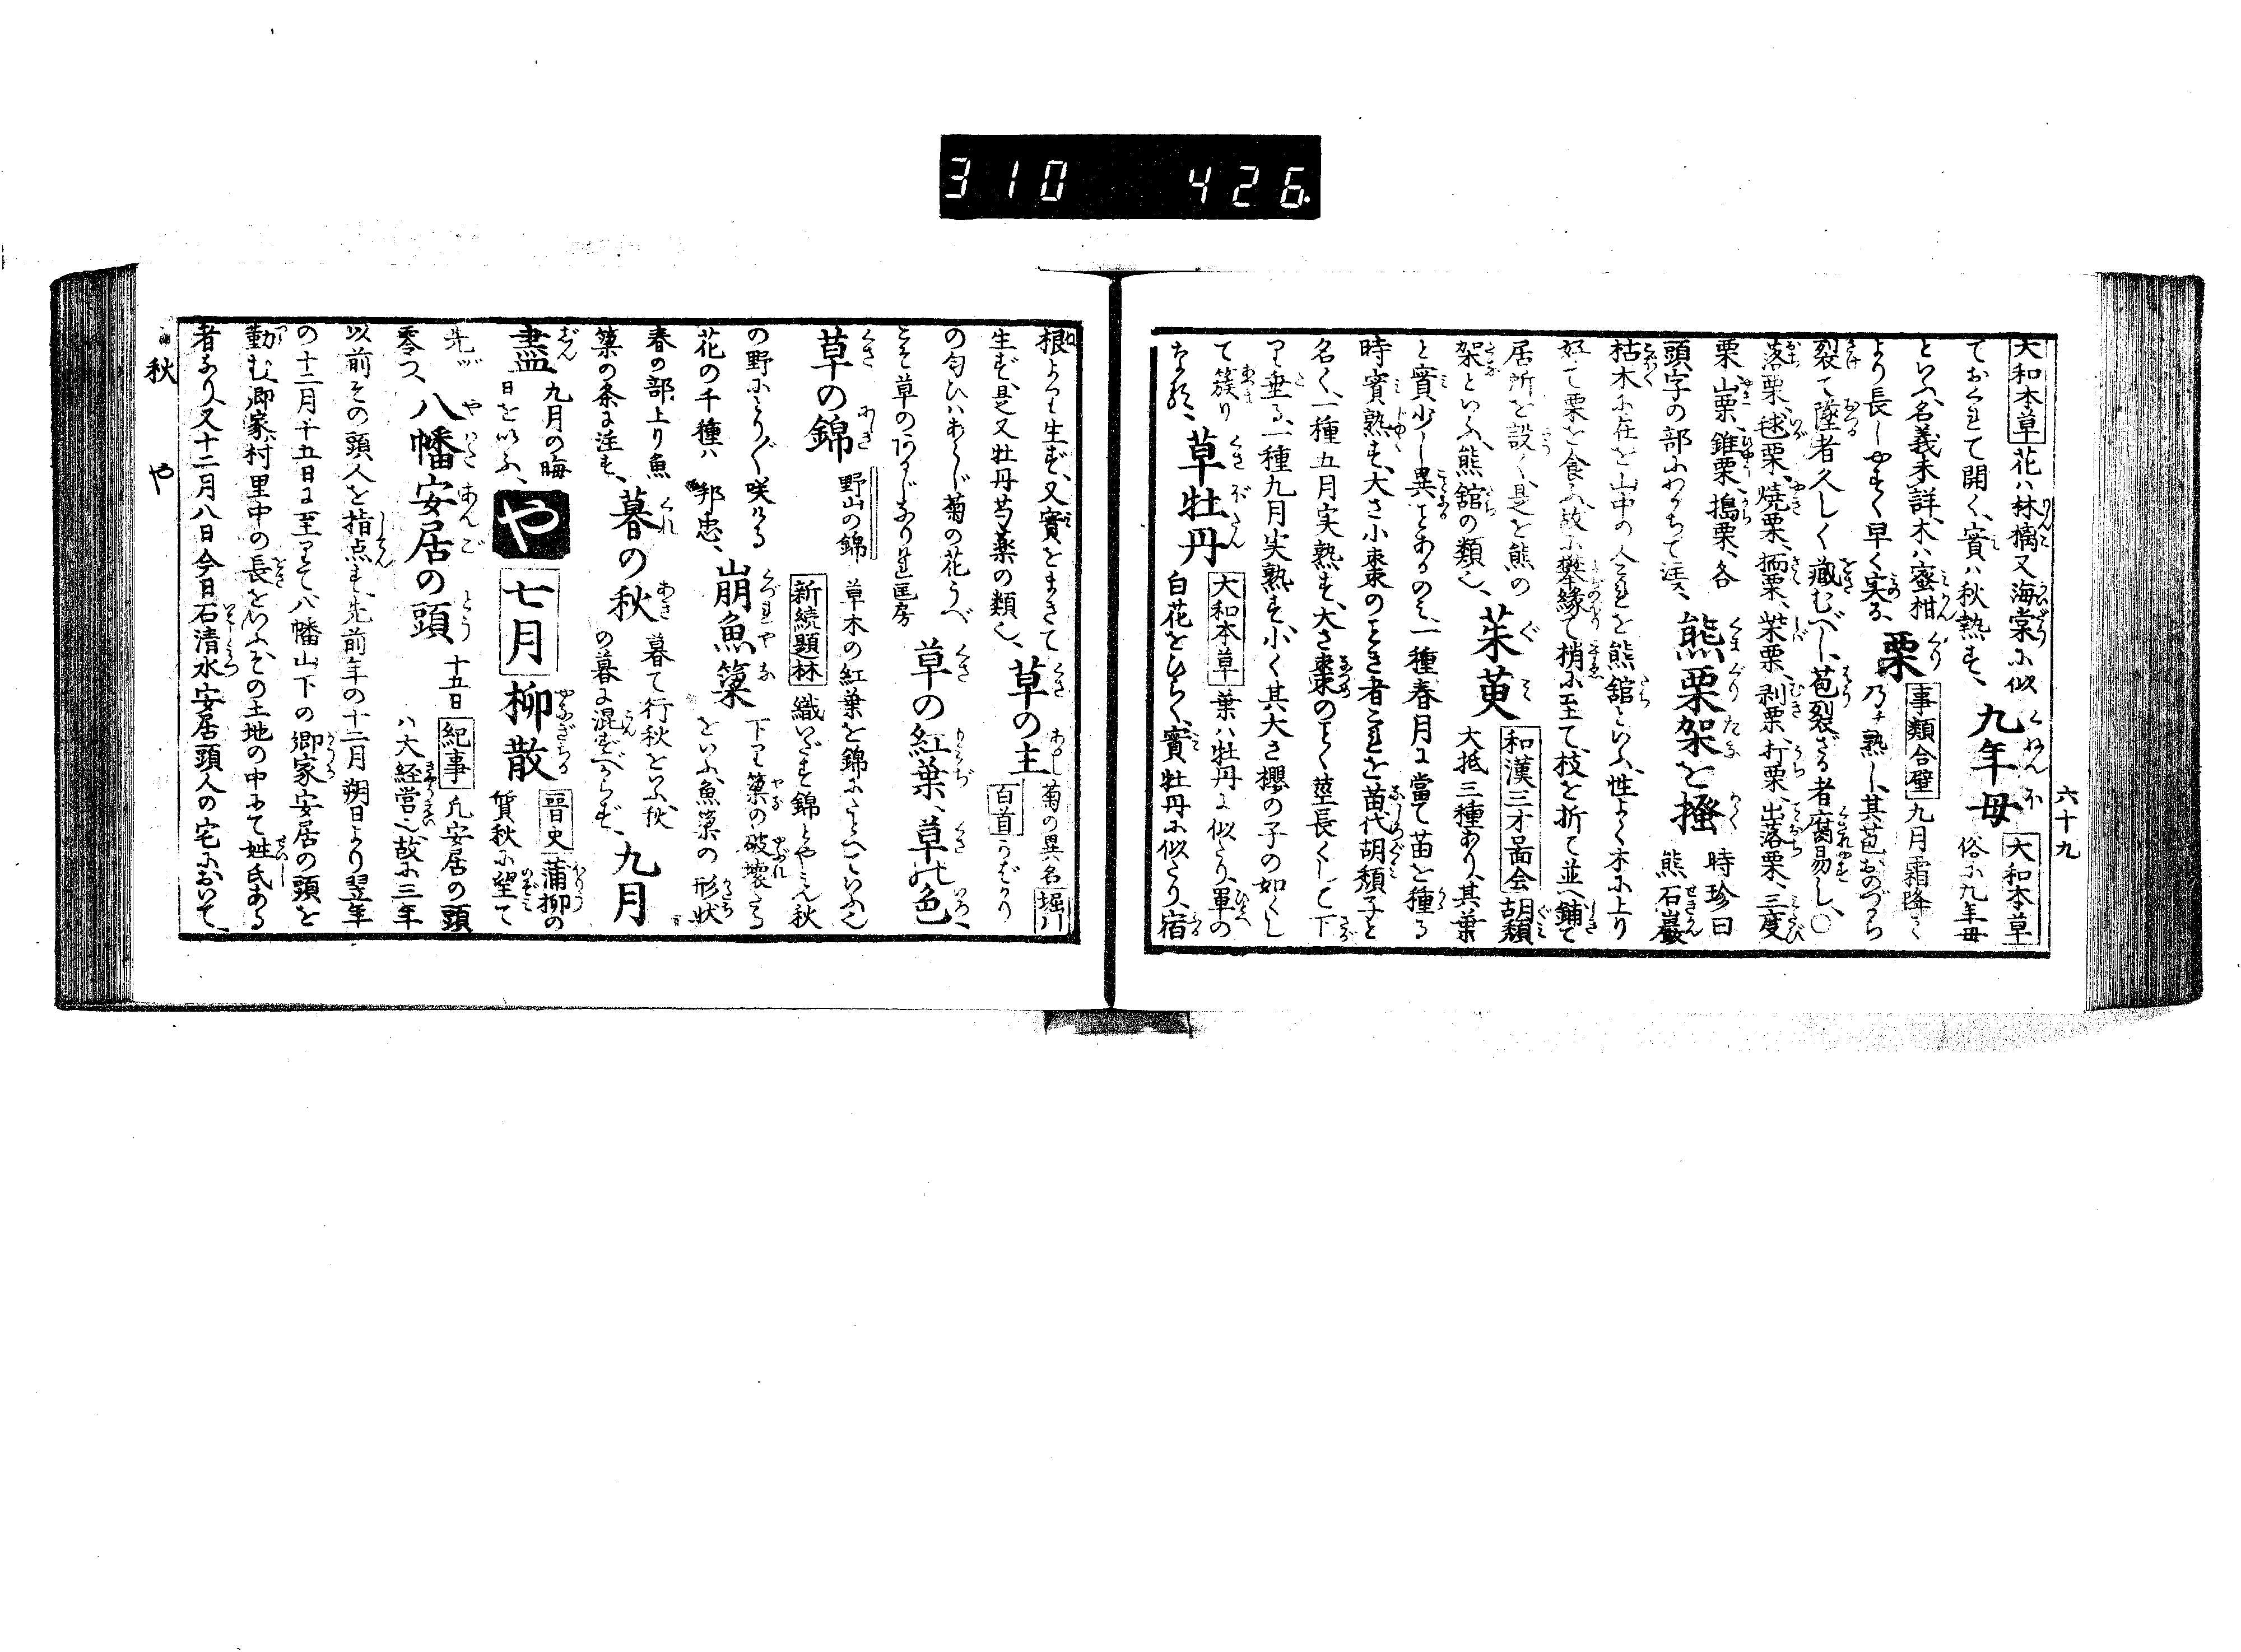 310 426.
六十九
大和本草 花ハ林檎又海棠に似
ておくれて開く、實ハ秋熟す、九年母 大和本草 俗に九年母
といふ、名義未詳、木ハ蜜柑
より長しやすく早く実る、栗 事類合璧 九月霜降
乃チ熟し、其苞おのづから
裂て墜る者久しく藏むべし、苞裂ざる者腐易し、〇
落栗、毬栗、焼栗、揣栗、柴栗、剥栗、打栗、出落栗、三度
栗、山栗、錐栗、搗栗、各
頭字の部にわかちて注ス、熊栗架を掻 時珍曰 熊石巌
枯木に在を山中の人これを熊舘といふ、性よく木に上り
好て栗を食ふ、故に攀縁て梢に至て、枝を折て並べ鋪て
居所を設く、是を熊の
架といふ、熊舘の類也、茱萸 和漢三才啚会 胡頽 大抵三種あり、其葉
と實少し異ことあるのミ、一種春月に當て苗を種る
時實熟す、大さ小棗のごとき者これを苗代胡頽子と
名く、一種五月実熟す、大さ棗のごとく莖長くして下
り垂る、一種九月実熟す、小く其大さ櫻の子の如くし
て簇り
なる、草牡丹 大和本草 葉ハ牡丹に似たり、單の
白花をひらく、實牡丹に似たり、宿
根より生ず、又實をまきて
生ず、是又牡丹芍薬の類也、草の主 菊の異名 堀川
百首 うばかり
の匂ひハあらじ菊の花うべ
こそ草のあるじなりけれ 匡房 草の紅葉、草の色、
草の錦 野山の錦 草木の紅葉を錦にたとへていふ也
新続題林 織いだす錦とやミん秋
の野にとり〴〵咲ける
花の千種ハ 邦忠、崩魚簗 下り簗の破壊たる
をいふ、魚簗の形状
春の部、上り魚
簗の条に注す、暮の秋 暮て行秋をいふ、秋
の暮に混ずべからず、九月
盡 九月の晦
日をいふ、や 七月 柳散 晋史 蒲柳の
質秋に望て
先ツ
零つ、八幡安居の頭 十五日 紀事 凡安居の頭
ハ大経営也、故に三年
以前その頭人を指点す、先前年の十二月朔日より翌年
の十二月十五日に至りて、八幡山下の郷家安居の頭を
勤む、郷家、村里中の長をいふ、その土地の中にて姓氏ある
者なり、又十二月八日今日石清水安居頭人の宅において、
秋 や